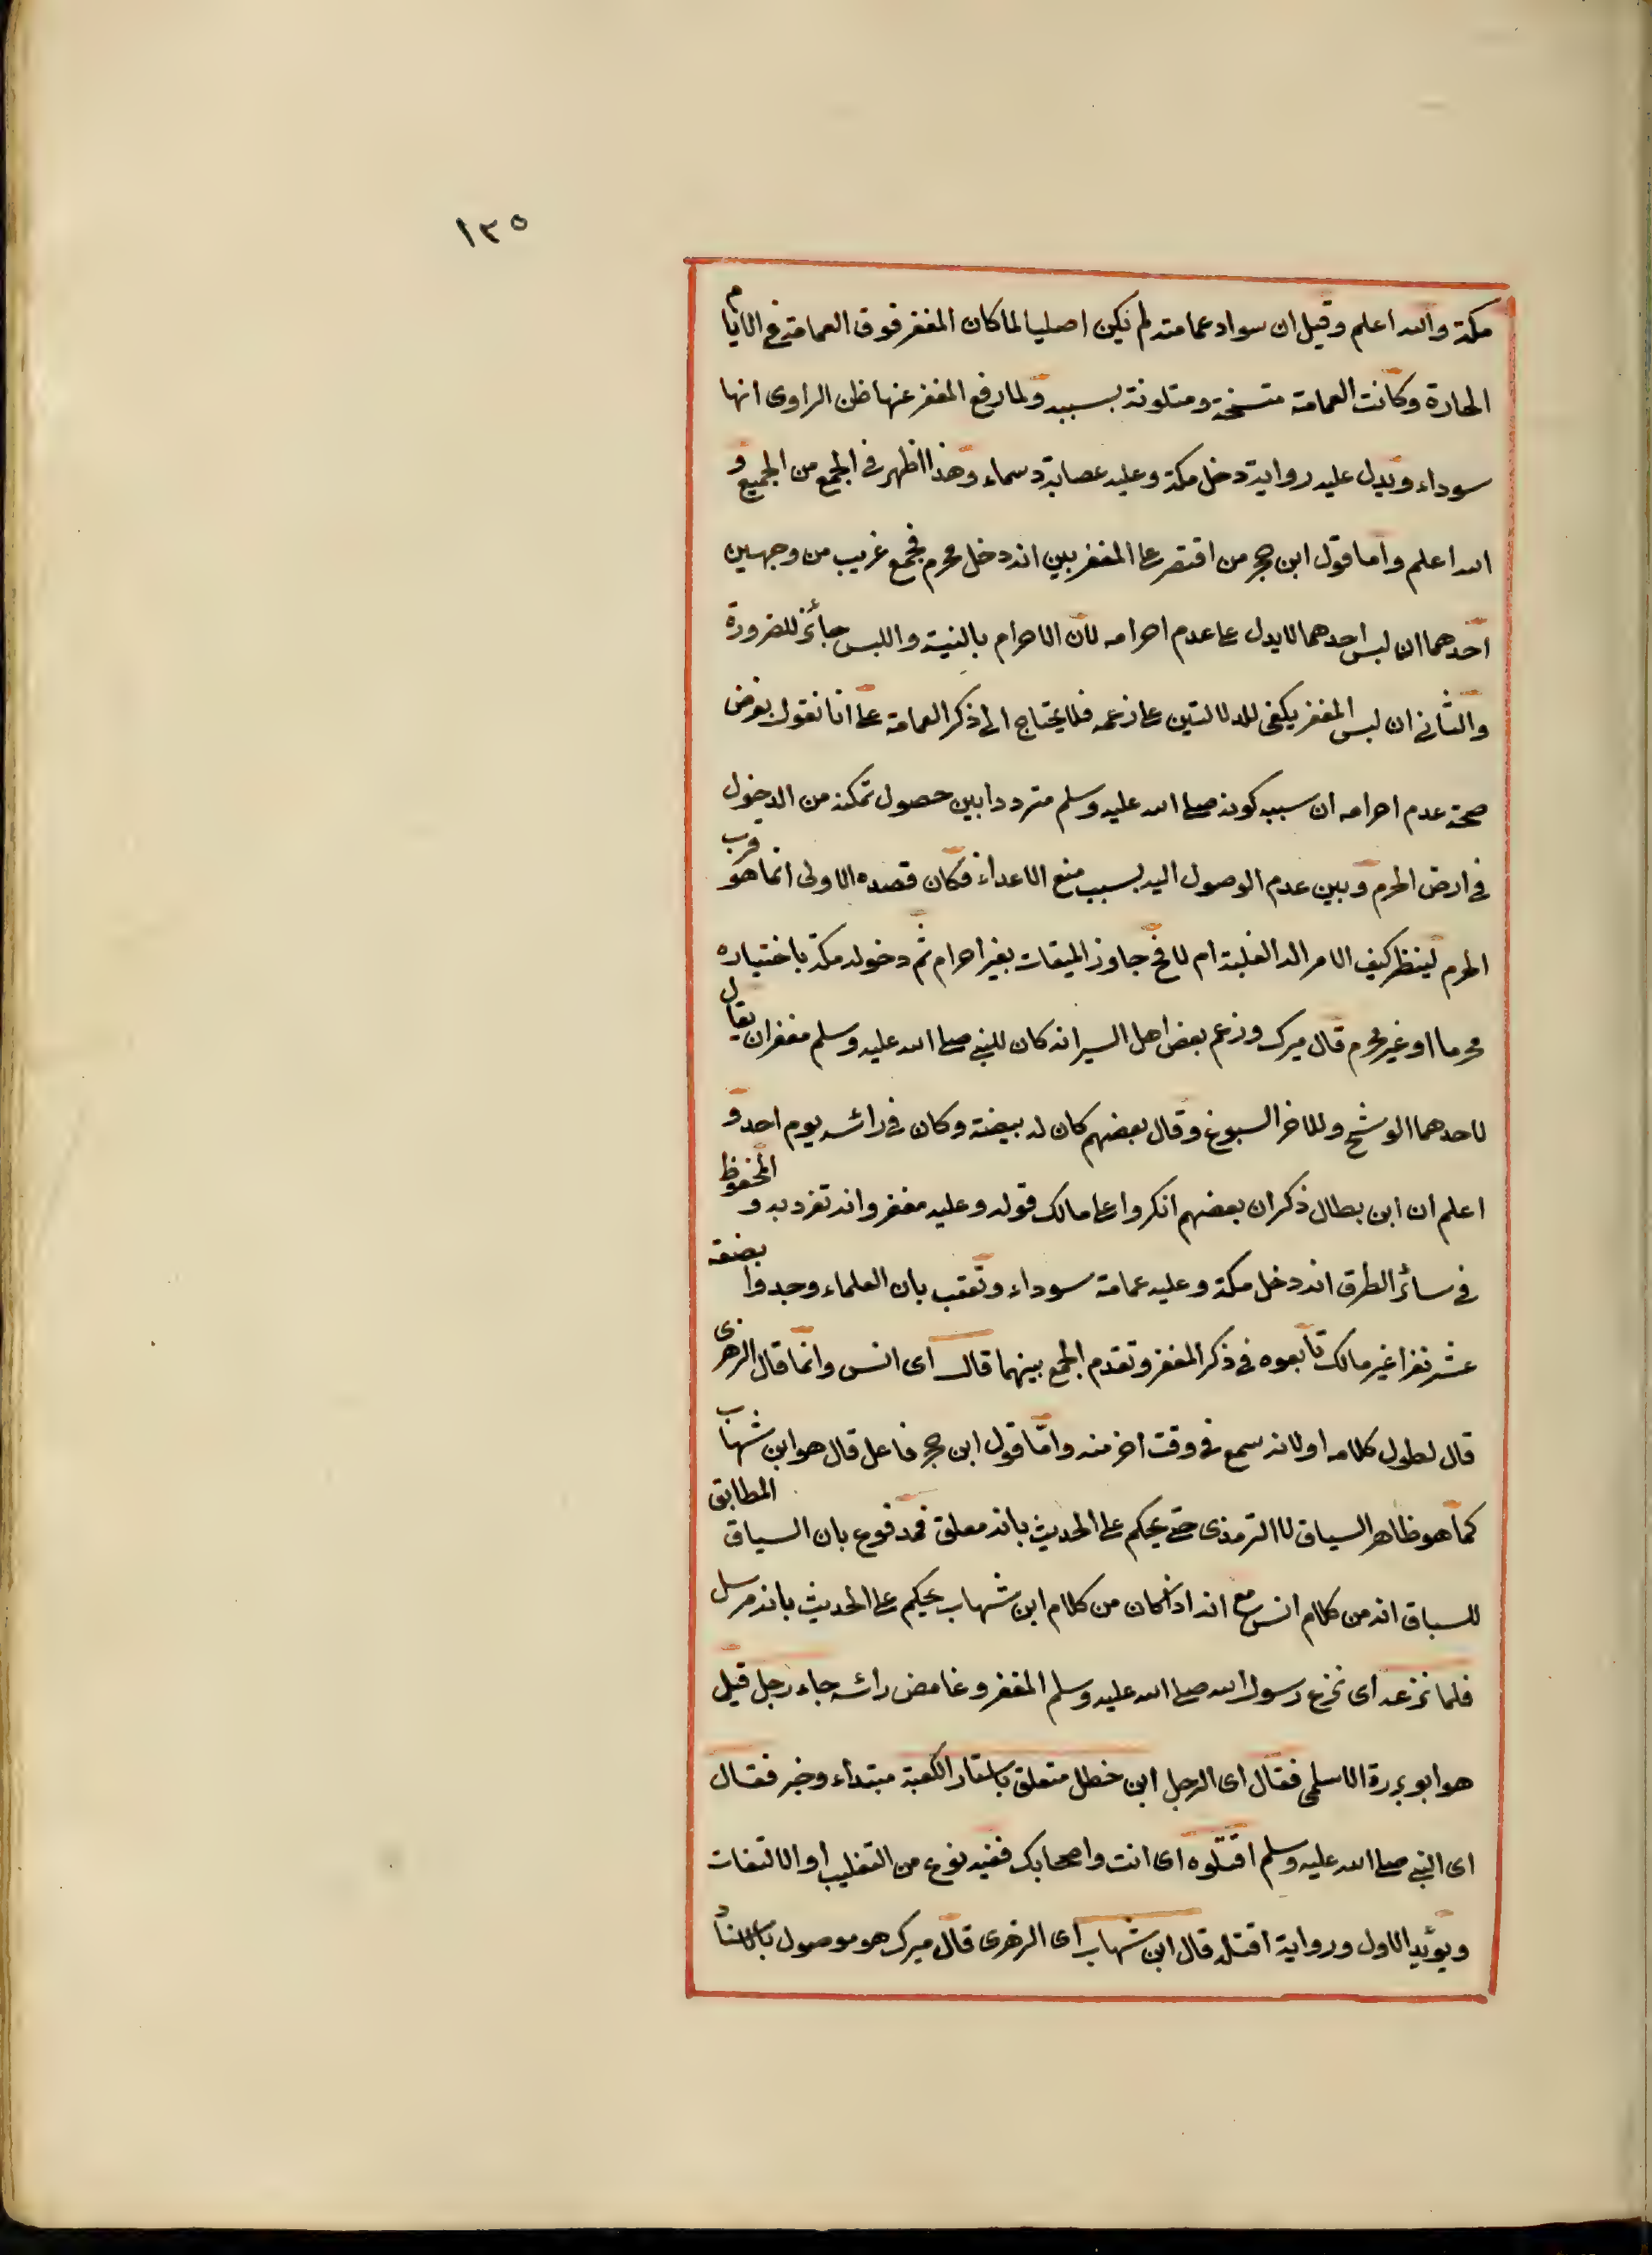 ١٣٥
مكة والله اعلم وقيل ان سواد عمامته لم تكن اصليا لما كان المغفر فوق العمامة في الايام
الحارة وكانت العمامة متسخة ومتلونة بسببه ولما رفع المغفر عنها ظن الراوى انها
سوداء ويدل عليه رواية دخل مكة وعليه عصابة دسماء وهذا اظهر في الجمع من الجميع و
الله اعلم واما قول ابن حجر من اقتصر على المغفر بين انه دخل محرم فجمع غريب من وجهين
احدهما ان لبس احدهما لا يدل على عدم احرامه لان الاحرام بالنية واللبس جائز للضرورة
والثاني ان لبس المغفر يكفى للدلالتين على زعمه فلا يحتاج الى ذكر العمامة على انا نقول بفرض
صحة عدم احرامه ان سببه كونه صلى الله عليه وسلم مترددا بين حصول تمكنه من الدخول
في ارض الحرم وبين عدم الوصول اليه بسبب منع الاعداء فكان قصده الاولى انما هو قرب
الحرم لينظر كيف الامر اله الغلبة ام لا فح جاوز الميقات بغير احرام ثم دخوله مكة باختياره
محرما او غير محرم قال ميرك وزعم بعض اهل السير انه كان للنبي صلى الله عليه وسلم مغفران يقال
لاحدهما الوشح وللاخر السبوغ وقال بعضهم كان له بيضة وكان في رأسه يوم احد و
اعلم ان ابن بطال ذكر ان بعضهم انكروا على مالك قوله وعليه مغفر وانه تفرد به و المحفوظ
في سائر الطرق انه دخل مكة وعليه عمامة سوداء وتعقب بان العلماء وجدوا بضعة
عشر نفرا غير مالك تابعوه في ذكر المغفر وتقدم الجمع بينهما قال اى انس وانما قال الزهرى
قال لطول كلامه او لانه سمع في وقت اخر منه واما قول ابن حجر فاعل قال هو ابن شهاب
كما هو ظاهر السياق لا الترمذى حتى يحكم على الحديث بانه معلق فمدفوع بان السياق المطابق
للسباق انه من كلام انس مع انه اذا كان من كلام ابن شهاب يحكم على الحديث بانه مرسل
فلما نزعه اى نزع رسول الله صلى الله عليه وسلم المغفر وغامض رأسه جاء رجل قيل
هو ابو بررة الاسلمى فقال اى الرجل ابن خطل متعلق باستار الكعبة مبتداء وخبر فقال
اى النبي صلى الله عليه وسلم اقتلوه اى انت واصحابك ففيه نوع من التغليب او الالتفات
ويؤيد الاول ورواية اقتله قال ابن شهاب اى الزهرى قال ميرك هو موصول بالاسناد